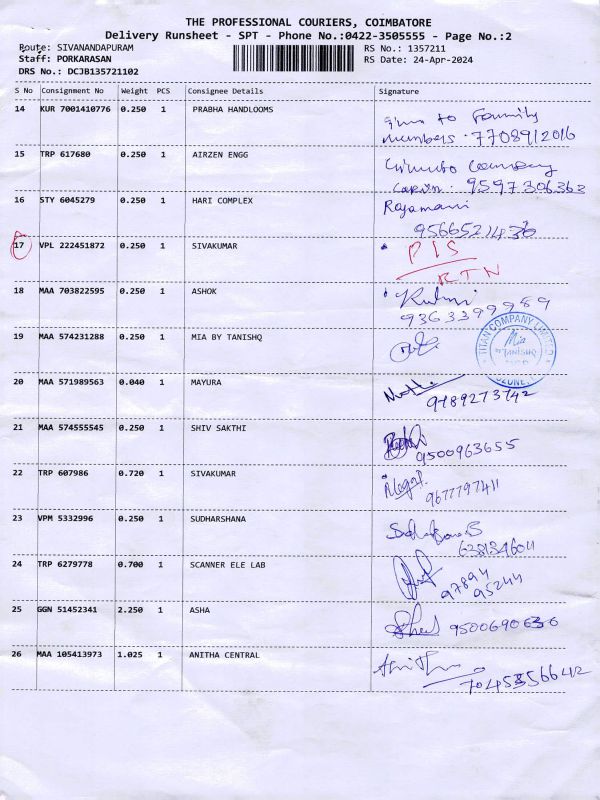 THE PROFESSIONAL COURIERS, COIMBATORE
Delivery Runsheet - SPT - Phone No.:0422-3505555 - Page No.:2
Route: SIVANANDAPURAM RS No.: 1357211
Staff: PORKARASAN RS Date: 24-Apr-2024
DRS No.: DCJB135721102
S No Consignment No Weight PCS Consignee Details Signature
14 KUR 7001410776 0.250 1 PRABHA HANDLOOMS
to Family
members . 7708912016
15 TRP 617680 0.250 1 AIRZEN ENGG
Company
9597306363
16 STY 6045279 0.250 1 HARI COMPLEX Rajamani
9566521436
17 VPL 222451872 0.250 1 SIVAKUMAR P I S
RTN
18 MAA 703822595 0.250 1 ASHOK
9363399989
19 MAA 574231288 0.250 1 MIA BY TANISHQ
TITAN COMPANY LIMITED
Mia
TANISHQ
20 MAA 571989563 0.040 1 MAYURA
9789273742
21 MAA 574555545 0.250 1 SHIV SAKTHI
9500963655
22 TRP 607986 0.720 1 SIVAKUMAR
9677797411
23 VPM 5332996 0.250 1 SUDHARSHANA
24 TRP 6279778 0.700 1 SCANNER ELE LAB
97894
95244
25 GGN 51452341 2.250 1 ASHA
26 MAA 105413973 1.025 1 ANITHA CENTRAL